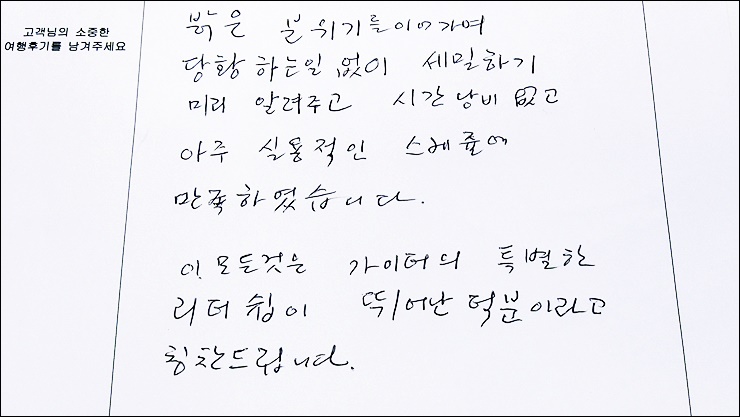 고객님의 소중한
여행후기를 남겨주세요
밝은 분위기를 이어가며
당황하는일 없이 세밀하기
미리 알려주고 시간낭비 없고
아주 실용적인 스케쥴에
만족하였습니다.
이 모든것은 가이더의 특별한
리더쉽이 뛰어난 덕분이라고
칭찬드립니다.